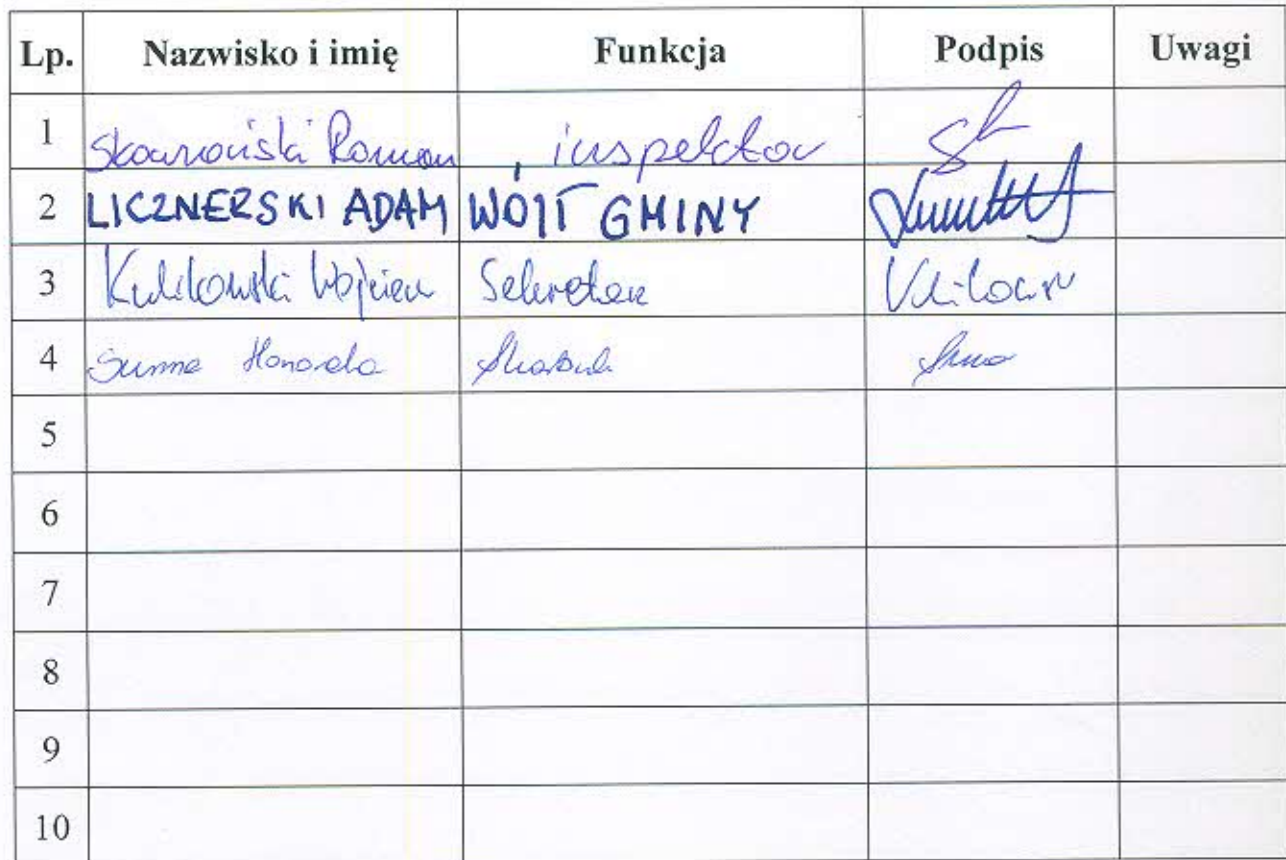 Lp. Nazwisko i imię Funkcja Podpis Uwagi
1 Skowroński Roman inspektor
2 LICZNERSKI ADAM WÓJT GMINY
3 Kulikowski Wojciech Sekretarz
4 Summa Honorata Skarbnik
5
6
7
8
9
10